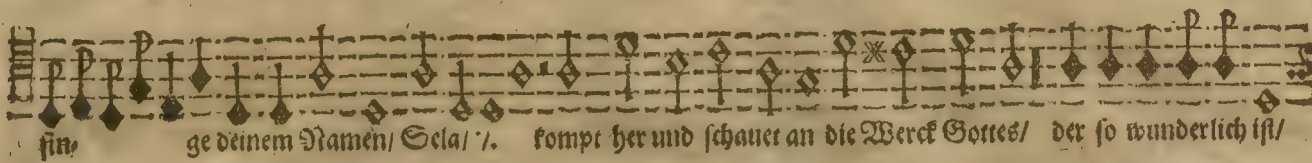 sin- ge deinem Namen/ Sela/ ⁒. kompt her und schauet an die Werck Gottes/ der so wunderlich ist/